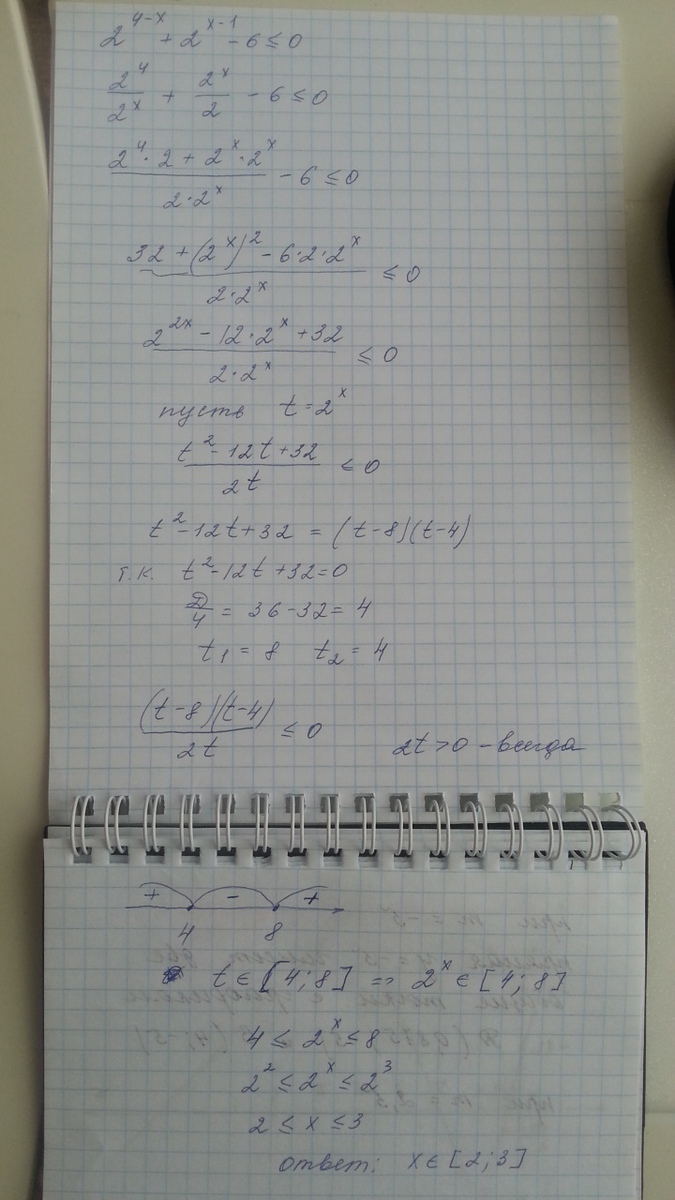 2^(4-x) + 2^(x-1) - 6 ≤ 0
2^4/2^x + 2^x/2 - 6 ≤ 0
(2^4 · 2 + 2^x · 2^x)/(2·2^x) - 6 ≤ 0
(32 + (2^x)^2 - 6·2·2^x)/(2·2^x) ≤ 0
(2^(2x) - 12·2^x + 32)/(2·2^x) ≤ 0
пусть t = 2^x
(t^2 - 12t + 32)/(2t) ≤ 0
t^2 - 12t + 32 = (t-8)(t-4)
т.к. t^2 - 12t + 32 = 0
D/4 = 36 - 32 = 4
t₁ = 8 t₂ = 4
((t-8)(t-4))/(2t) ≤ 0 2t > 0 - всегда
+ - +
4 8
t ∈ [4; 8] => 2^x ∈ [4; 8]
4 ≤ 2^x ≤ 8
2^2 ≤ 2^x ≤ 2^3
2 ≤ x ≤ 3
ответ: x ∈ [2; 3]